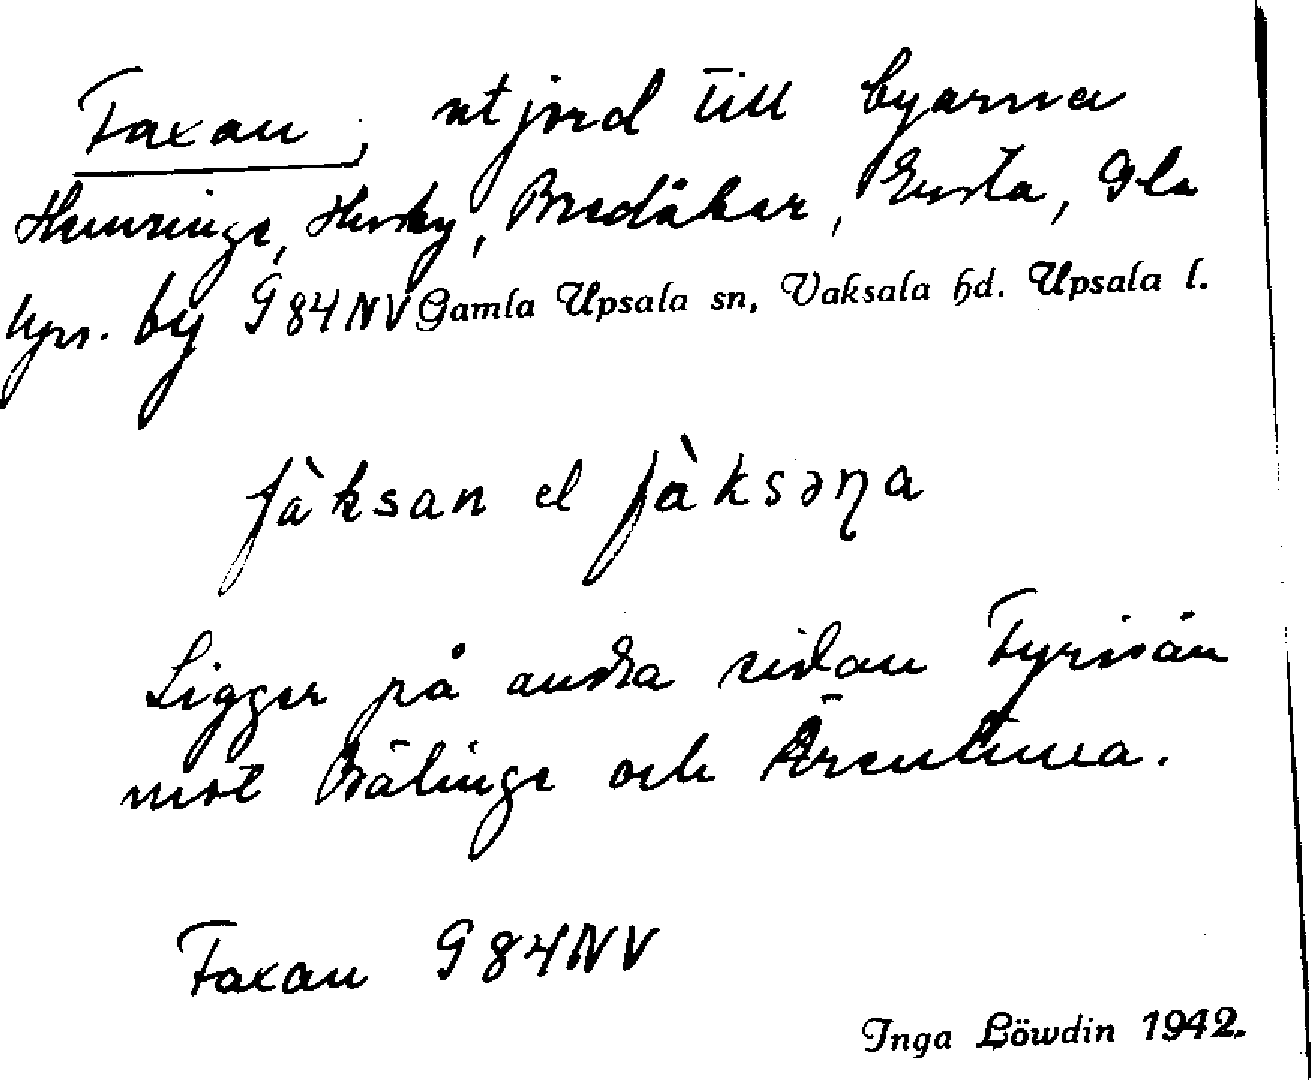 Faxan, utjord till byarna
Hemringe, Husby, Bredåker, Ensta, Gla
kyrs. by G 84 NV Gamla Upsala sn, Vaksala hd. Upsala l.
fàksan el fàksəŋa
Ligger på andra sidan Fyrisån
mot Bälinge och Ärentuna.
Faxan G 84 NV
Inga Löwdin 1942.